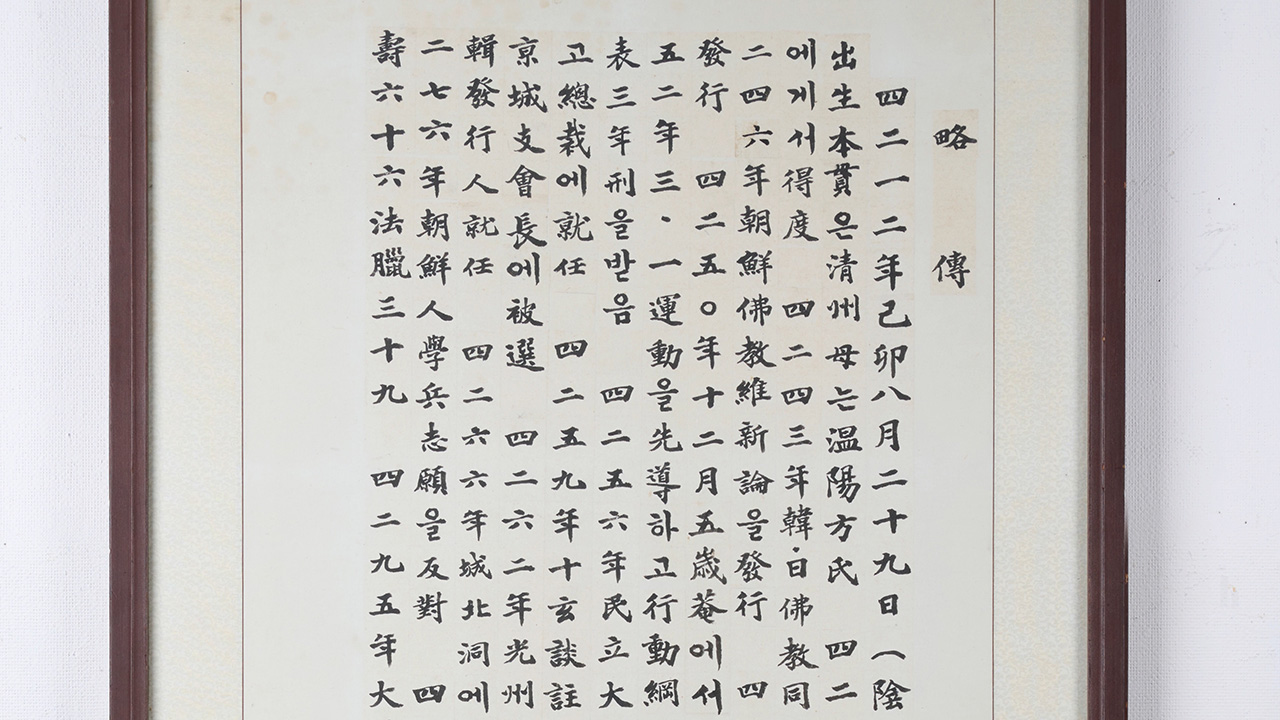 略傳
四二一二年己卯八月二十九日(陰
出生本貫은清州母는温陽方氏 四二
에게서得度 四二四三年韓·日佛教同
二四六年朝鮮佛教維新論을發行 四
發行 四二五〇年十二月五歲菴에서
五二年三·一運動을先導하고行動綱
表三年刑을받음 四二五六年民立大
고總裁에就任 四二五九年十玄談註
京城支會長에被選 四二六二年光州
輯發行人就任 四二六六年城北洞에
二七六年朝鮮人學兵志願을反對 四
壽六十六法臘三十九 四二九五年大